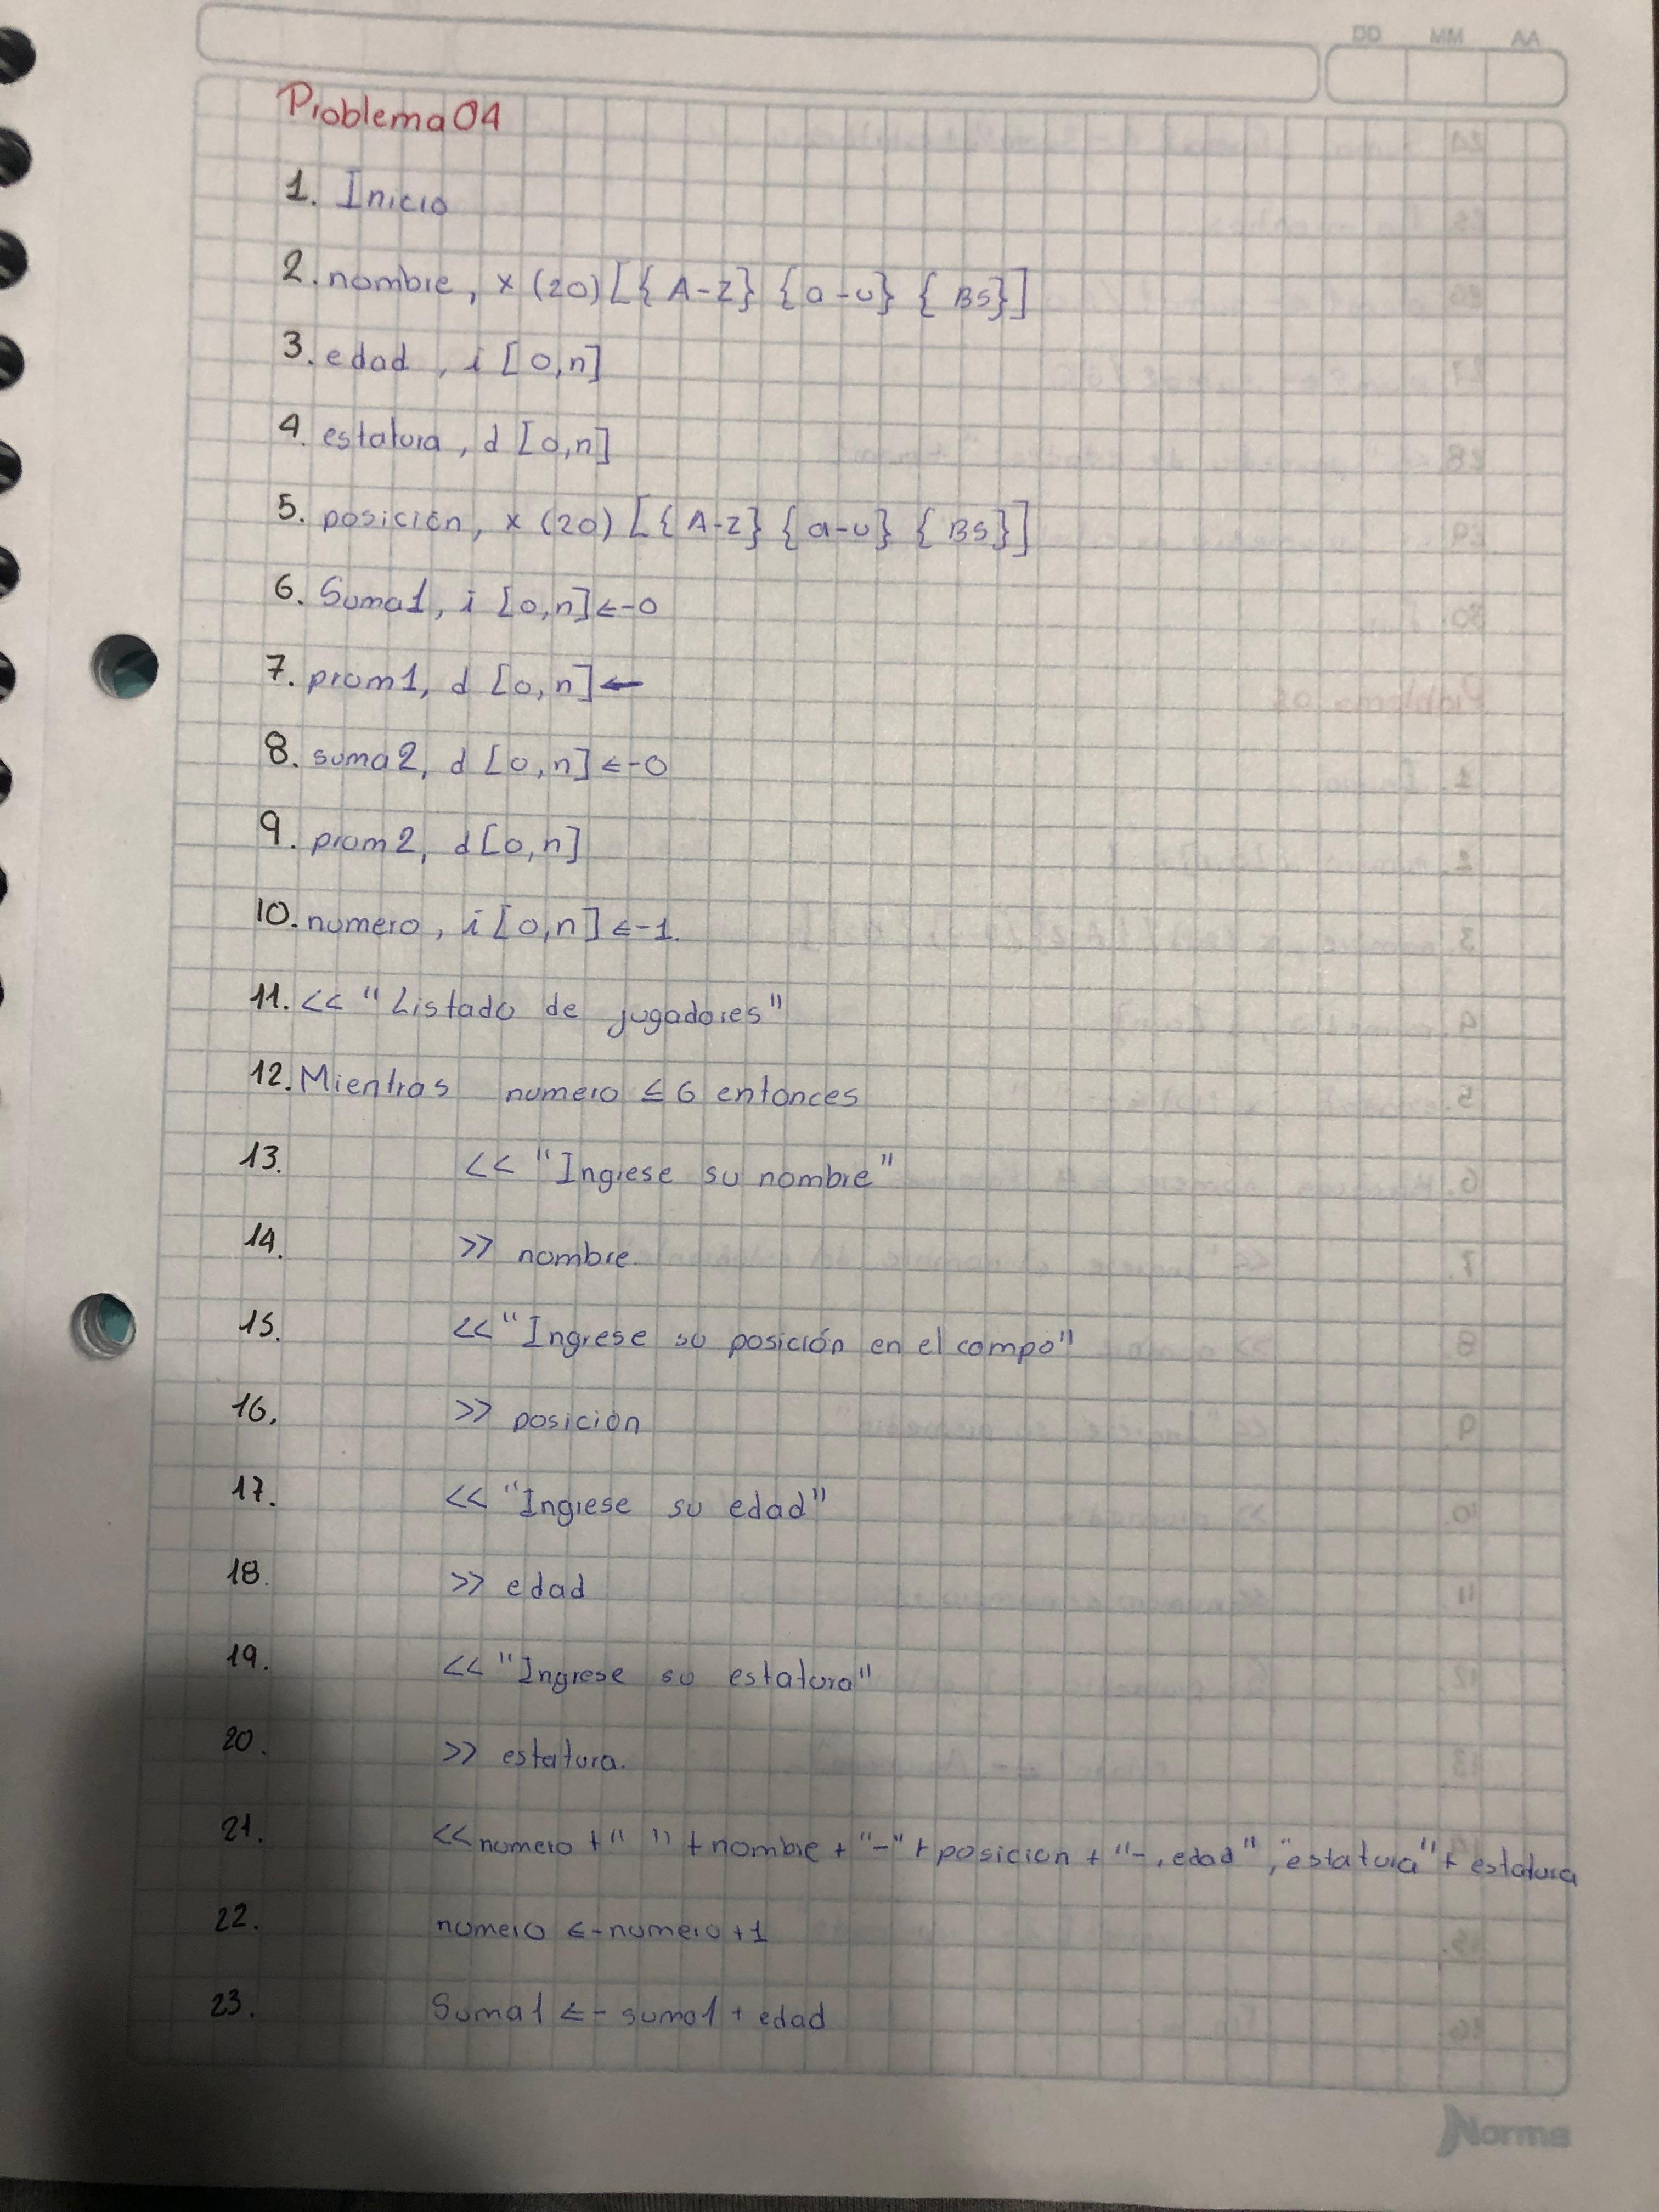 DD MM AA
Problema 04
1. Inicio
2. nombre, x (20) [{A-Z} {a-u} {BS}]
3. edad, i [0,n]
4. estatura, d [0,n]
5. posición, x (20) [{A-Z} {a-u} {BS}]
6. Suma1, i [0,n] <-0
7. prom1, d [0,n] ←
8. suma2, d [0,n] <-0
9. prom2, d [0,n]
10. numero, i [0,n] <-1.
11. << "Listado de jugadores"
12. Mientras numero ≤ 6 entonces
13. << "Ingrese su nombre"
14. >> nombre.
15. << "Ingrese su posición en el campo"
16. >> posición
17. << "Ingrese su edad"
18. >> edad
19. << "Ingrese su estatura"
20. >> estatura.
21. << numero + " " + nombre + "-" + posicion + "-, edad", "estatura" + estatura
22. numero <- numero + 1
23. Suma1 <- suma1 + edad
Norma